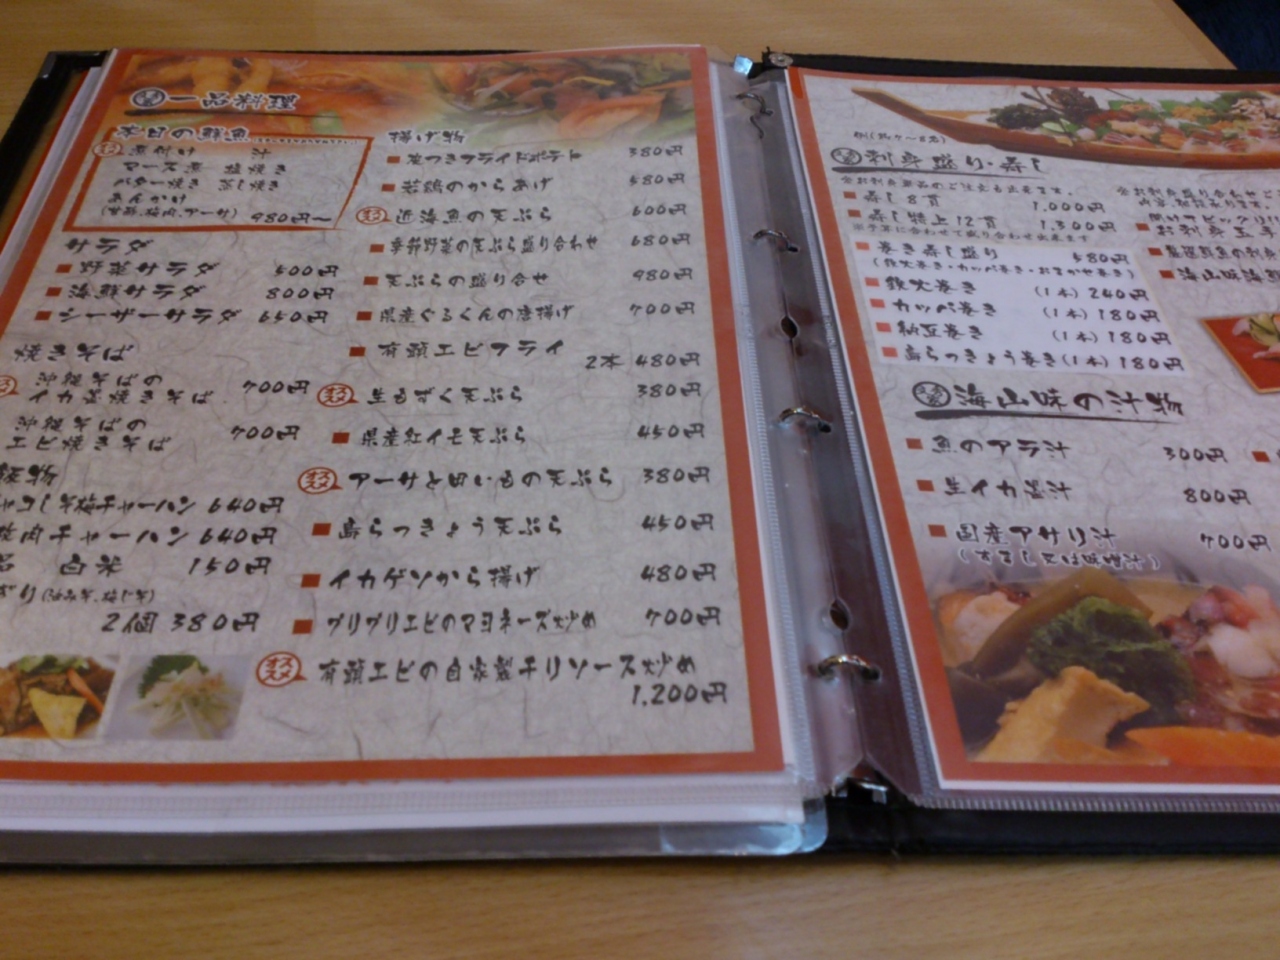 一品料理
本日の鮮魚
煮付け 汁
マース煮 塩焼き
バター焼き 蒸し焼き
あんかけ
(野菜、梅肉、アーサ) 980円〜
サラダ
野菜サラダ 500円
海鮮サラダ 800円
シーザーサラダ 650円
焼きそば
沖縄そばの
イカ墨焼きそば 700円
沖縄そばの
エビ焼きそば 700円
飯物
チャーハン 640円
梅肉チャーハン 640円
白米 150円
2個 380円
揚げ物
皮つきフライドポテト 380円
若鶏のからあげ 580円
近海魚の天ぷら 600円
季節野菜の天ぷら盛り合わせ 680円
天ぷらの盛り合せ 980円
県産ぐるくんの唐揚げ 700円
有頭エビフライ
2本 480円
オススメ 生もずく天ぷら 380円
県産紅イモ天ぷら 450円
オススメ アーサと田いもの天ぷら 380円
島らっきょう天ぷら 450円
イカゲソから揚げ 480円
プリプリエビのマヨネーズ炒め 700円
オススメ 有頭エビの自家製チリソース炒め
1.200円
刺身盛り・寿し
寿し8貫 1.000円
寿し特上12貫 1.300円
巻き寿し盛り 580円
(鉄火巻き・カッパ巻き・おまかせ巻き)
鉄火巻き (1本) 240円
カッパ巻き (1本) 180円
納豆巻き (1本) 180円
島らっきょう巻き(1本) 180円
海山味の汁物
魚のアラ汁 300円
生イカ墨汁 800円
国産アサリ汁 700円
(すまし又は味噌汁)